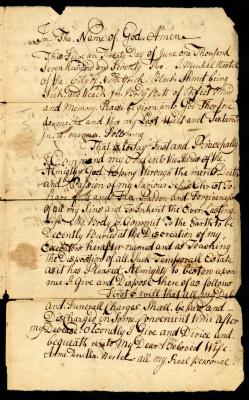 In The Name of God Amen
This Five an Twenty Day of June one Thousand
Seven hundred and Seventy two. I
of the City of New York Being
Sick and Weak in Body But of Perfect Mind
and Memory Praise be given unto God Therefore
do make and this my Last Will and Testament
in manner Following
That is to Say First and Principally
I Command my Soul into the Hands of the
Almighty God hoping through the merits Death
and Passion of my Saviour Jesus Christ to
have full and Free Pardon and Forgiveness
of all my Sins and to Inherit the Ever Lasting
Life My Body I Commit to the Earth to be
Decently Buried at the Descretion of my
Executors herafter named and as Touching
the Disposition of all Such Temporall Estate
as it has Pleased Almighty to bestow upon
me I Give and Dispose there of as follows
First I will that all my Debts
and Funerall Charges Shall be paid and
Discharged in Some Convenient time after
my Decease Secondly I Give and Device and
bequeath unto My Dear Beloved Wife
Anna all my Real personal